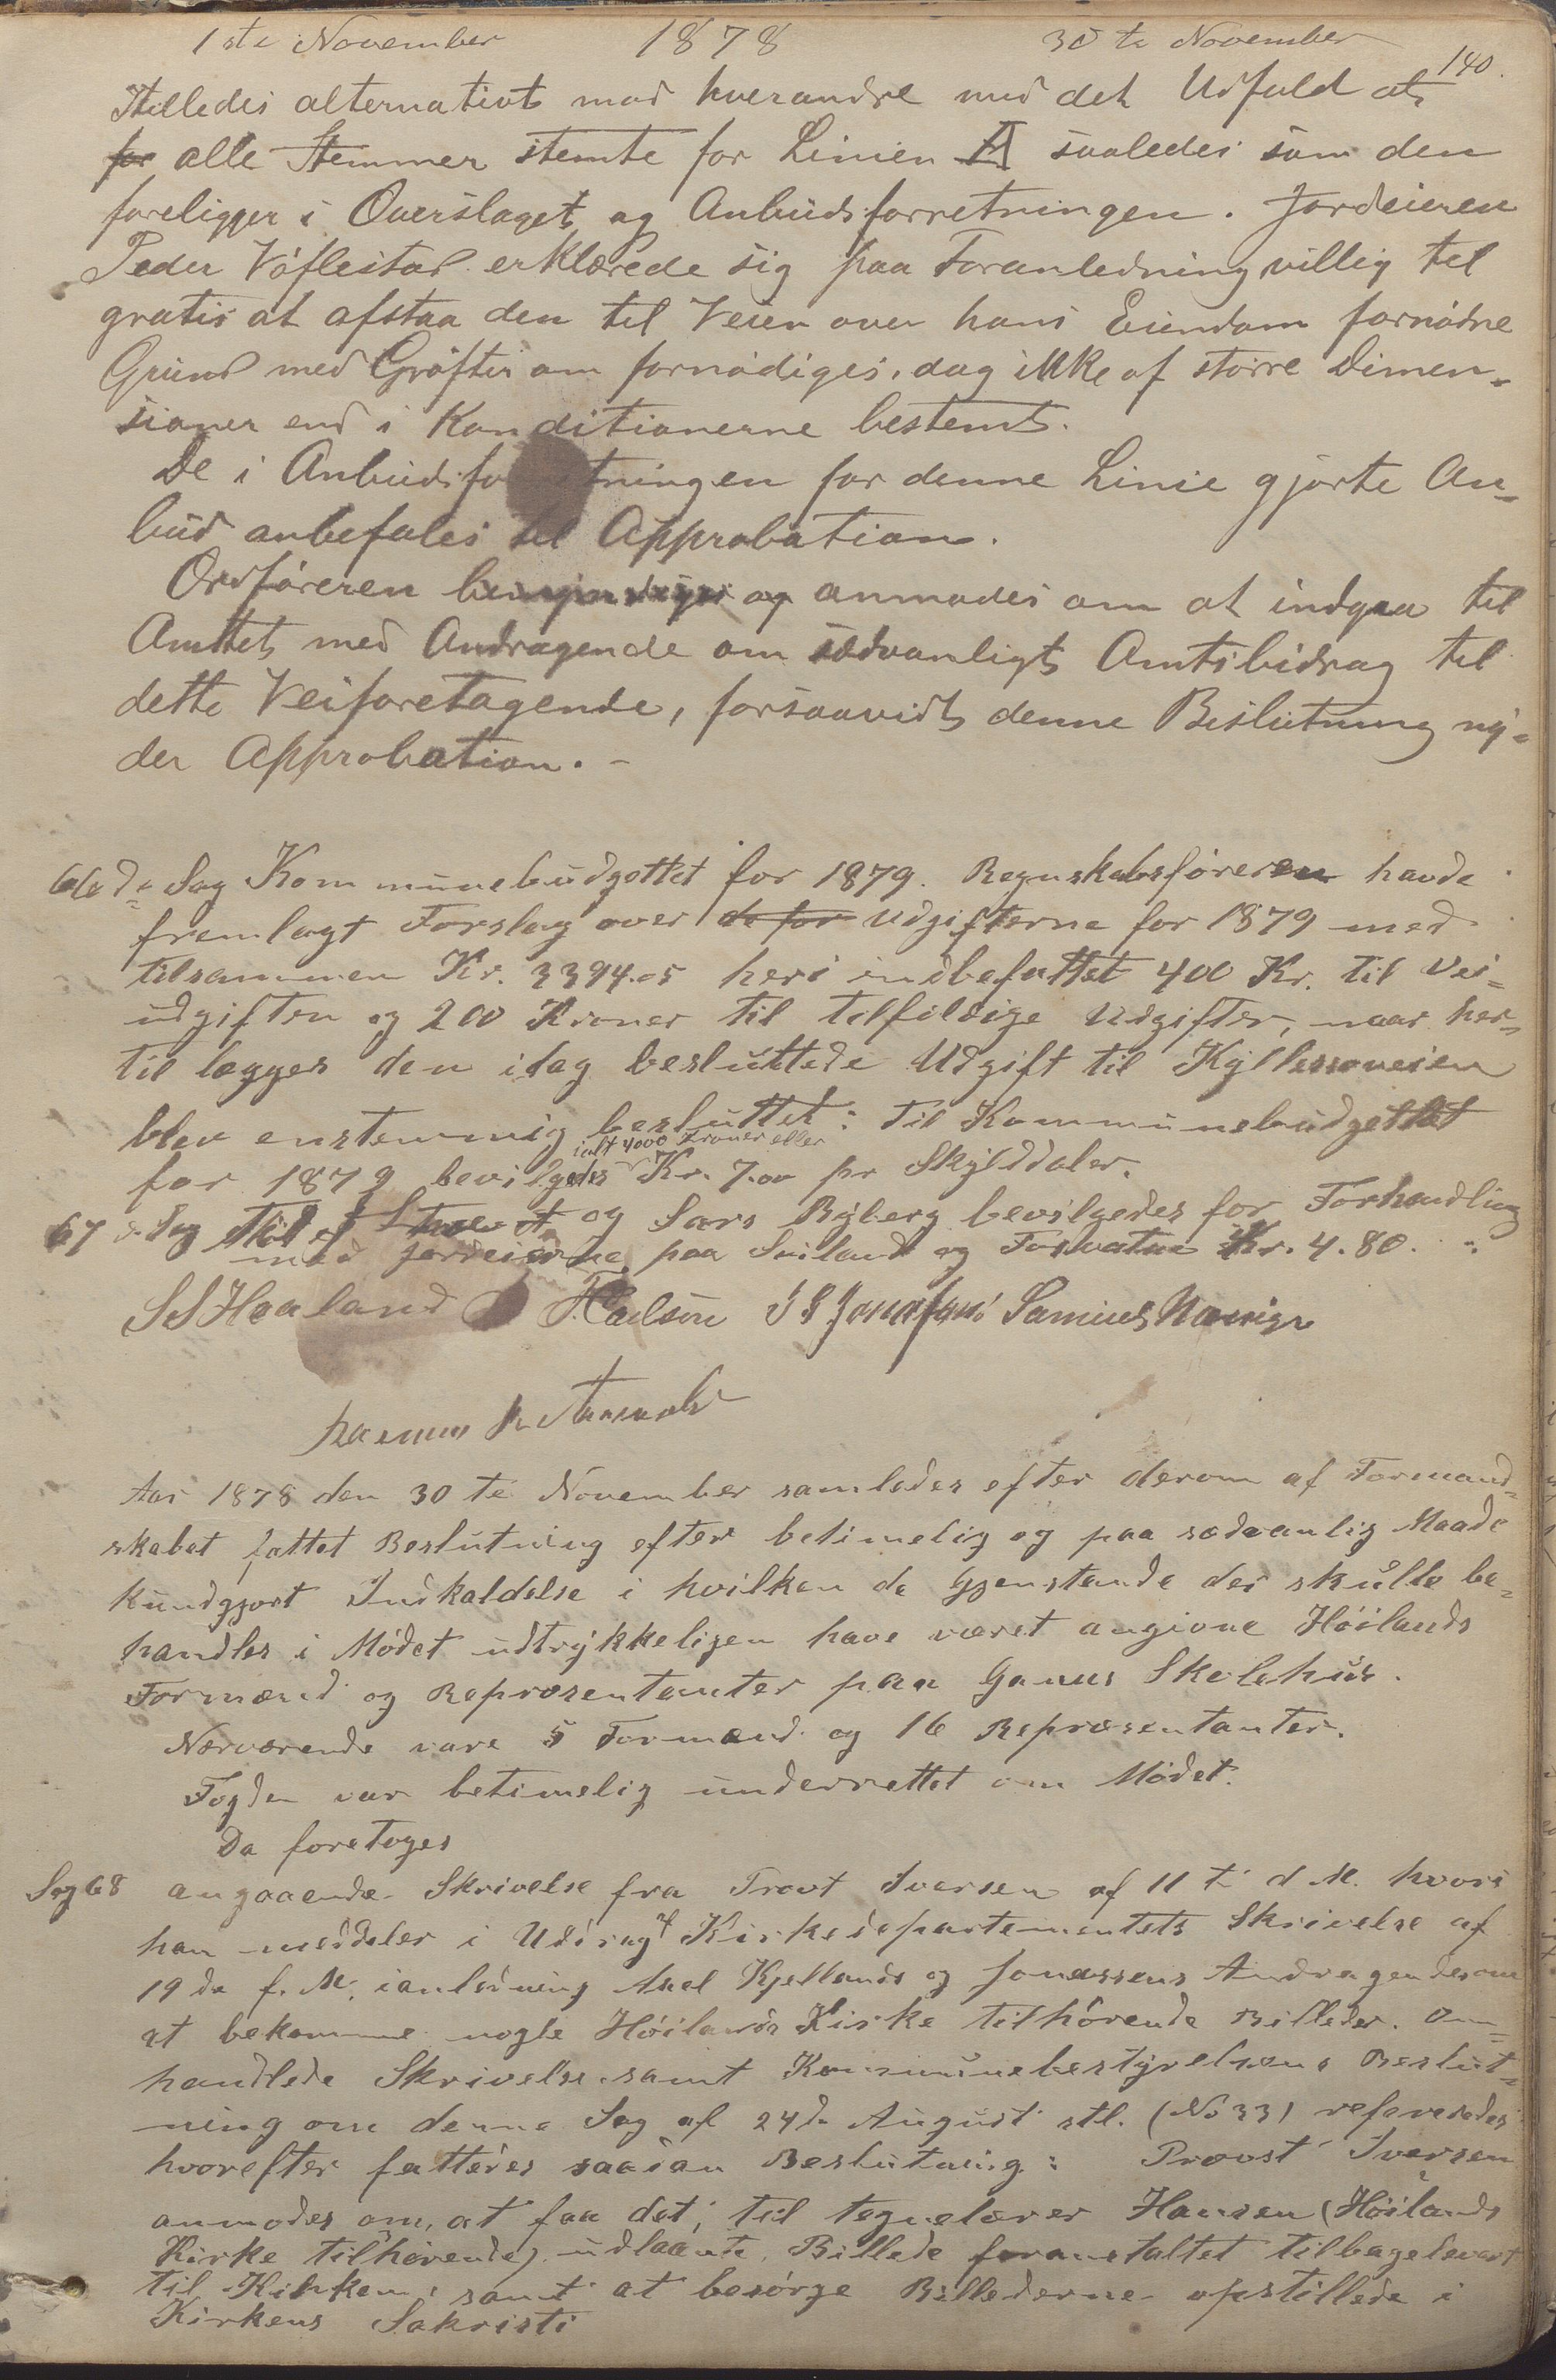 1ste November 1878 30te November
140.
stilledes alternativt mod hverandre med det Udfald at
for alle Stemmer stemte for Linien A saaledes som den
foreligger i Overslaget og Anbudsforretningen. Jordeieren
Peder Vøflestad erklærede sig paa Foranledning villig til
gratis at afstaa den til Veien over hans Eiendom fornødne
Grund med Grøfter om fornødiges, dog ikke af større Dimen-
sioner end i Konditionerne bestemt.
De i Anbudsforretningen for denne Linie gjorte An-
bud anbefales til Approbation.
Ordføreren og anmodes om at indgaa til
Amtet med Andragende om sædvanligt Amtsbidrag til
dette Veiforetagende, forsaavidt denne Beslutning ny-
der Approbation. -
66de Sag Kommunebudgettet for 1879. Regnskabsføreren havde
fremlagt Forslag over de for Udgifterne for 1879 med
tilsammen Kr. 3394.05 heri indbefattet 400 Kr. til Vei-
udgifter og 200 Kroner til tilfeldige Udgifter, naar her-
til lægges den idag besluttede Udgift til Kyllessoveien
blev enstemmig besluttet: Til Kommunebudgettet
ialt 4000 Kroner eller
for 1879 bevilgedes Kr. 7.00 pr Skylddaler.
67 Sag og Lars Ryberg bevilgedes for Forhandling
med Jordeierne paa Sviland og Fosvatne Kr. 4.80.
S S Haaland Paulson Samuel
Rasmus
Aar 1878 den 30te November samledes efter derom af Formand-
skabet fattet Beslutning efter betimelig og paa sædvanlig Maade
kundgjort Indkaldelse i hvilken de Gjenstande der skulle be-
handles i Mødet udtrykkeligen have været angivne Høilands
Formænd og Repræsentanter paa Ganns Skolehus.
Nærværende vare 5 Formænd og 16 Repræsentanter.
Fogden var betimelig underrettet om Mødet.
Da foretoges
Sag 68 angaaende Skrivelse fra Provst Iversen af 11te d. M. hvori
han meddeler i Uddrag af Kirkedepartementets Skrivelse af
19de f. M. ianledning Axel Kjellands og Jonassens Andragende om
at bekomme nogle Høilands Kirke tilhørende Billeder. Om-
handlede Skrivelse samt Kommunebestyrelsens Beslut-
ning om denne Sag af 24de August stl. (No 33) refereredes
hvorefter fattedes saadan Beslutning: Provst Iversen
anmodes om, at faa det, til Tegnelærer Hansen (Høilands
Kirke tilhørende) udlaante Billede foranstaltet tilbageleveret
til Kirken, samt at besørge Billederne opstillede i
Kirkens Sakristi